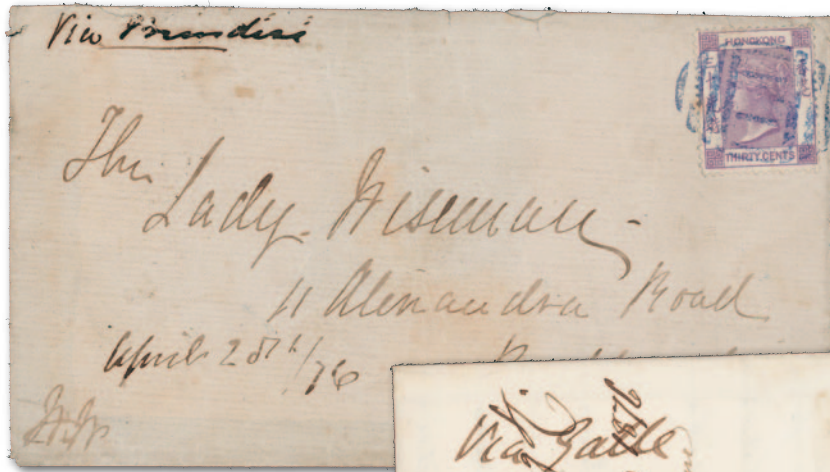 Via Brindisi
HONGKONG
THIRTY CENTS
The
Lady Wiseman
11 Alexandra Road
April 25th/76
W.W.
Via Galle